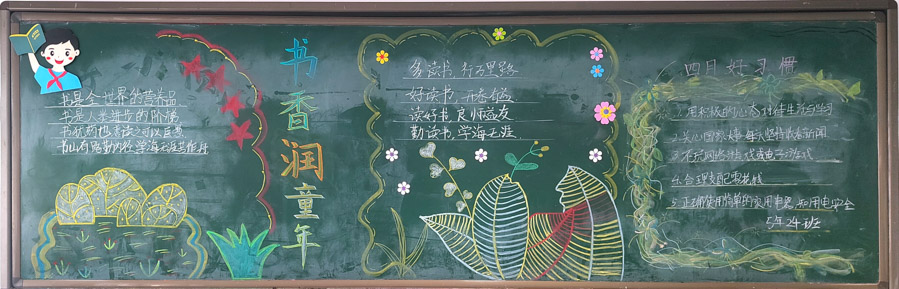 书是全世界的营养品
书是人类进步的阶梯
书犹药也善读之可以医愚
书山有路勤为径学海无涯苦作舟
书香润童年
多读书,行万里路
好读书,开卷有益
读好书,良师益友
勤读书,学海无涯
四月好习惯
1.用积极的心态对待生活和学习
2.关心国家大事,每天坚持收看新闻
3.不玩网络游戏或电子游戏
4.合理支配零花钱
5.正确使用简单的家用电器,知用电安全
5年24班